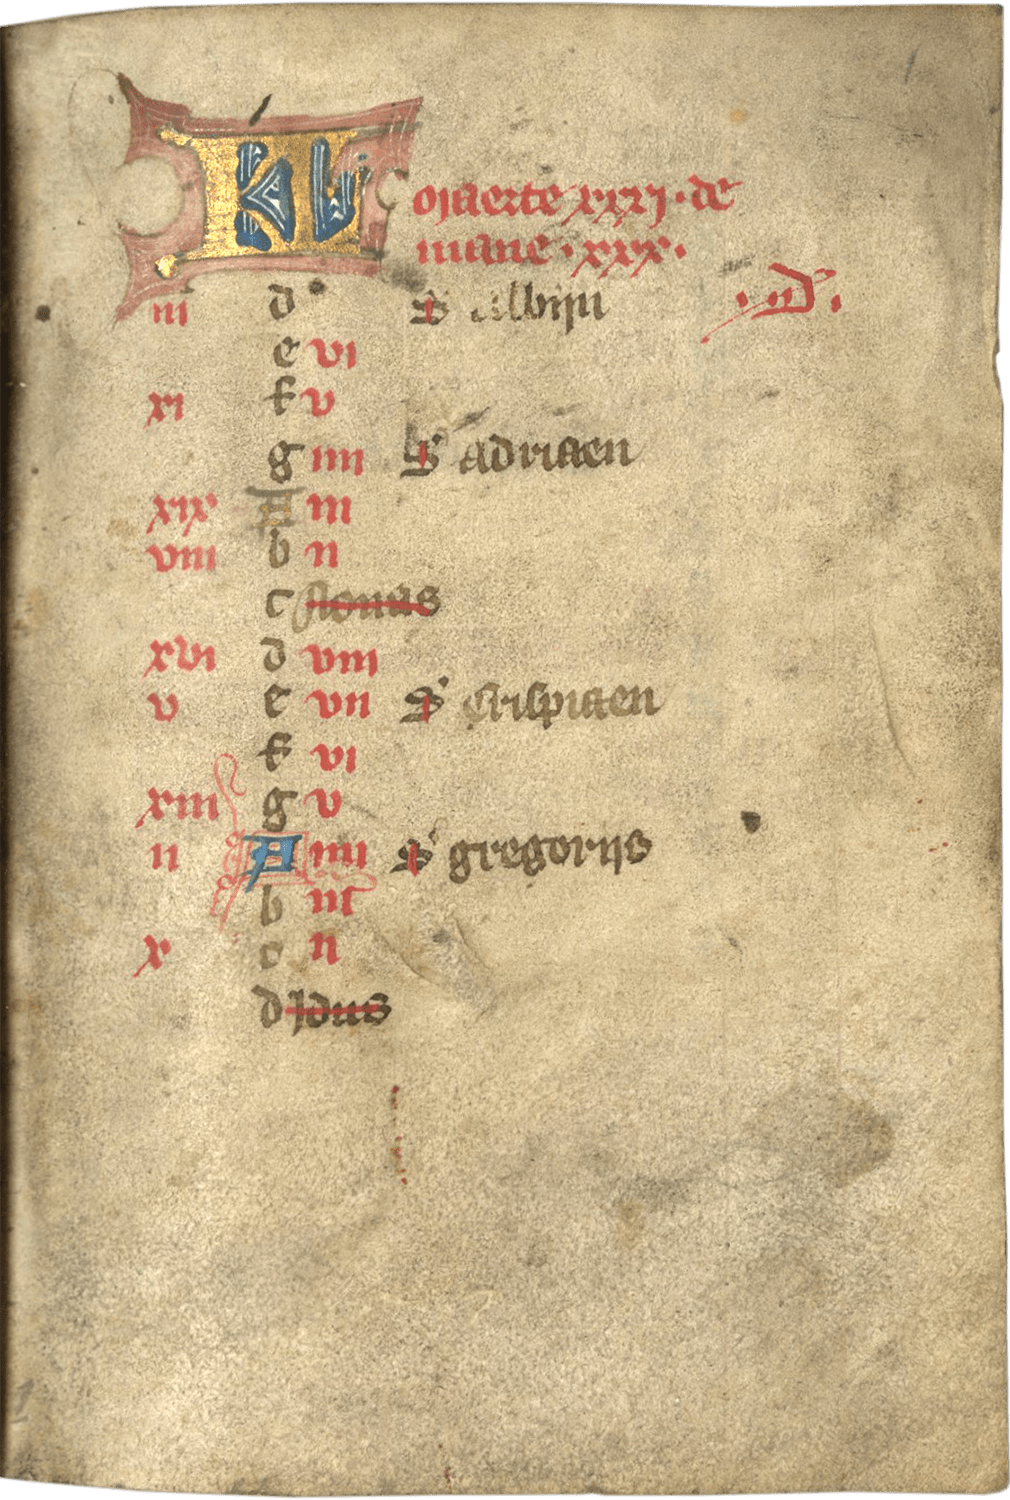 KL Maerte xxxi · de
mane · xxx ·
iii d S' albijn · d ·
e vi
xi f v
g iiii S' adriaen
xix A iii
viii b ii
c Nonas
xvi d viii
v e vii S' crispiaen
f vi
xiii g v
ii A iiii S' gregorijs
b iii
x c ii
d Idus